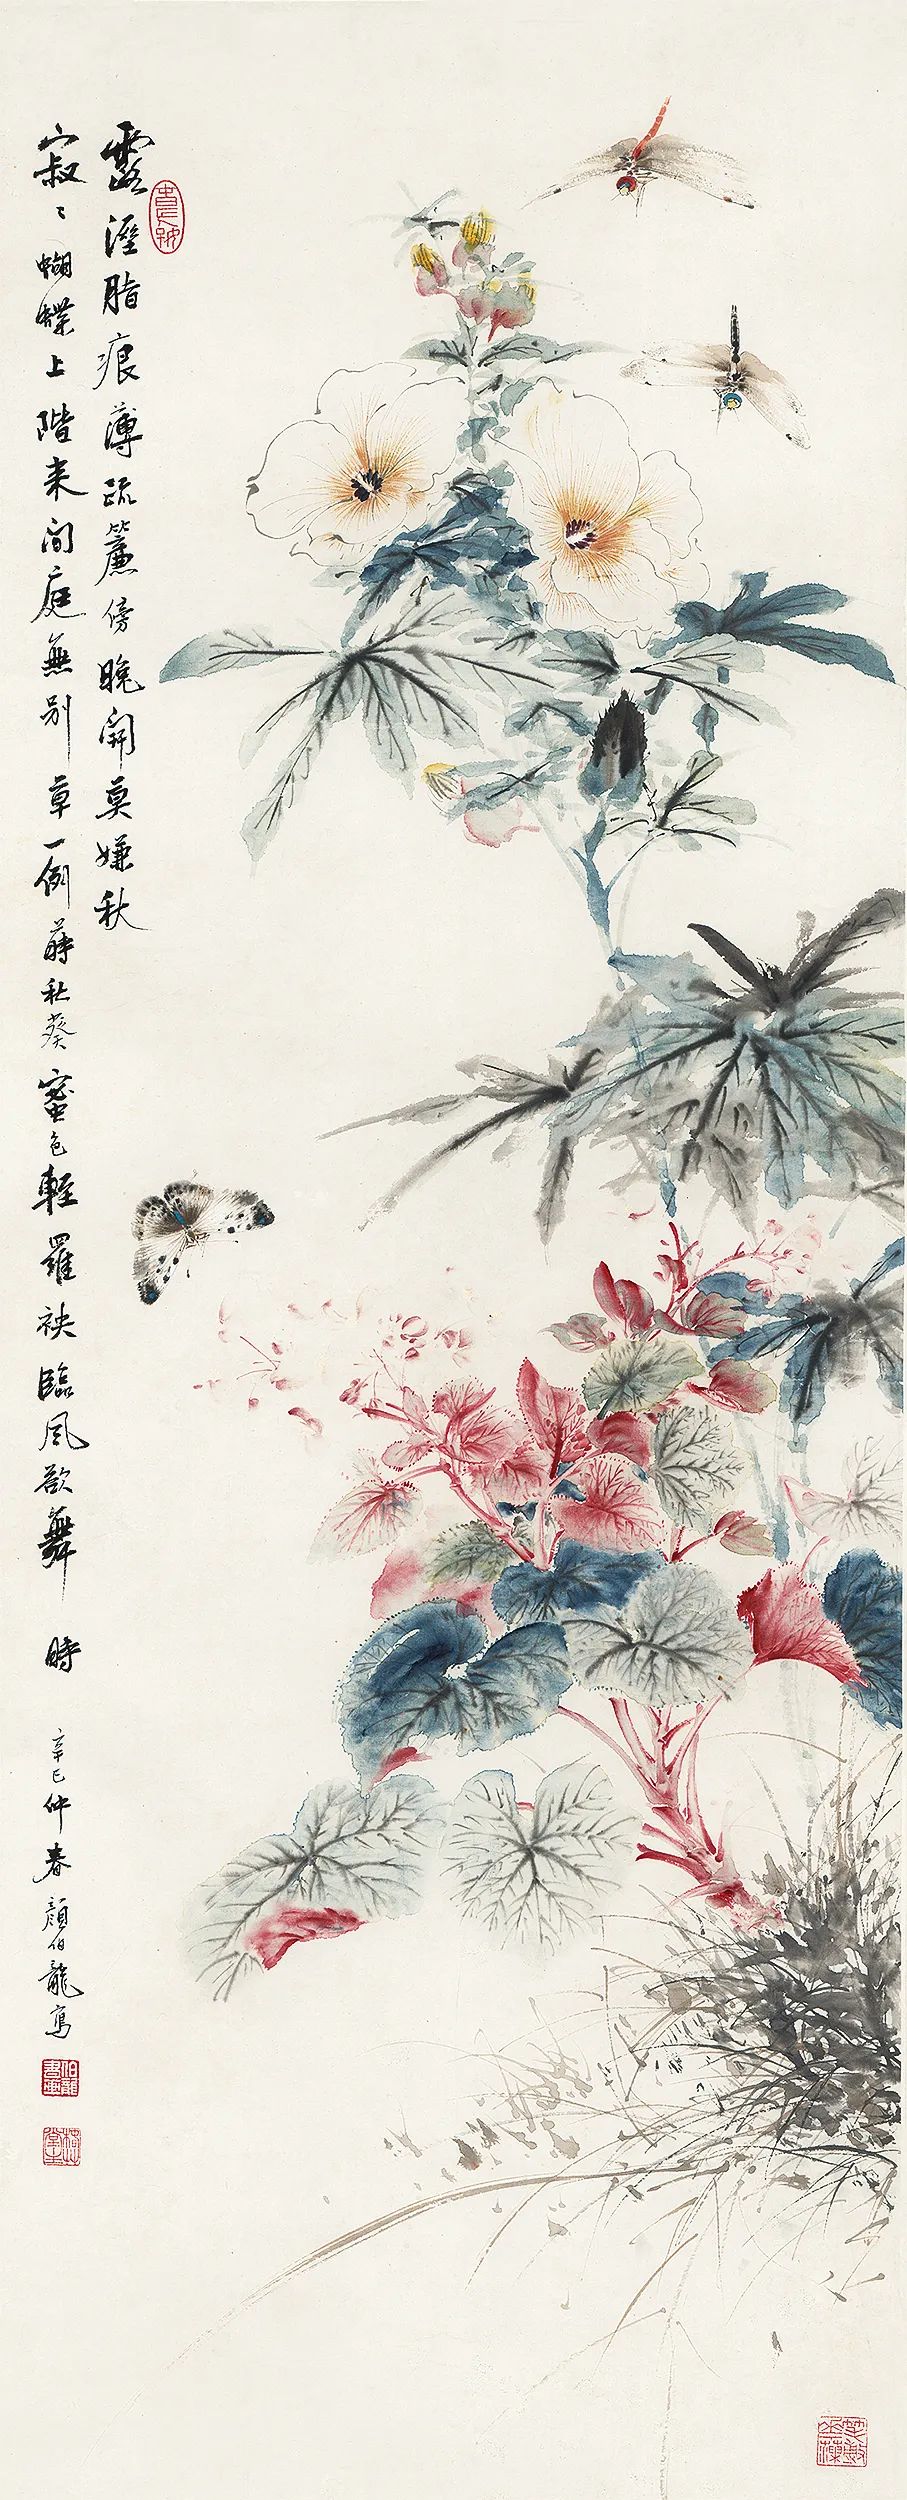 露溼脂痕薄疏簾傍晚開莫嫌秋
寂〻蝴蝶上階来閒庭無別草一例蒔秋葵蜜色輕羅袂臨風欲舞時
辛巳仲春顏伯龍寫
伯龍書畫